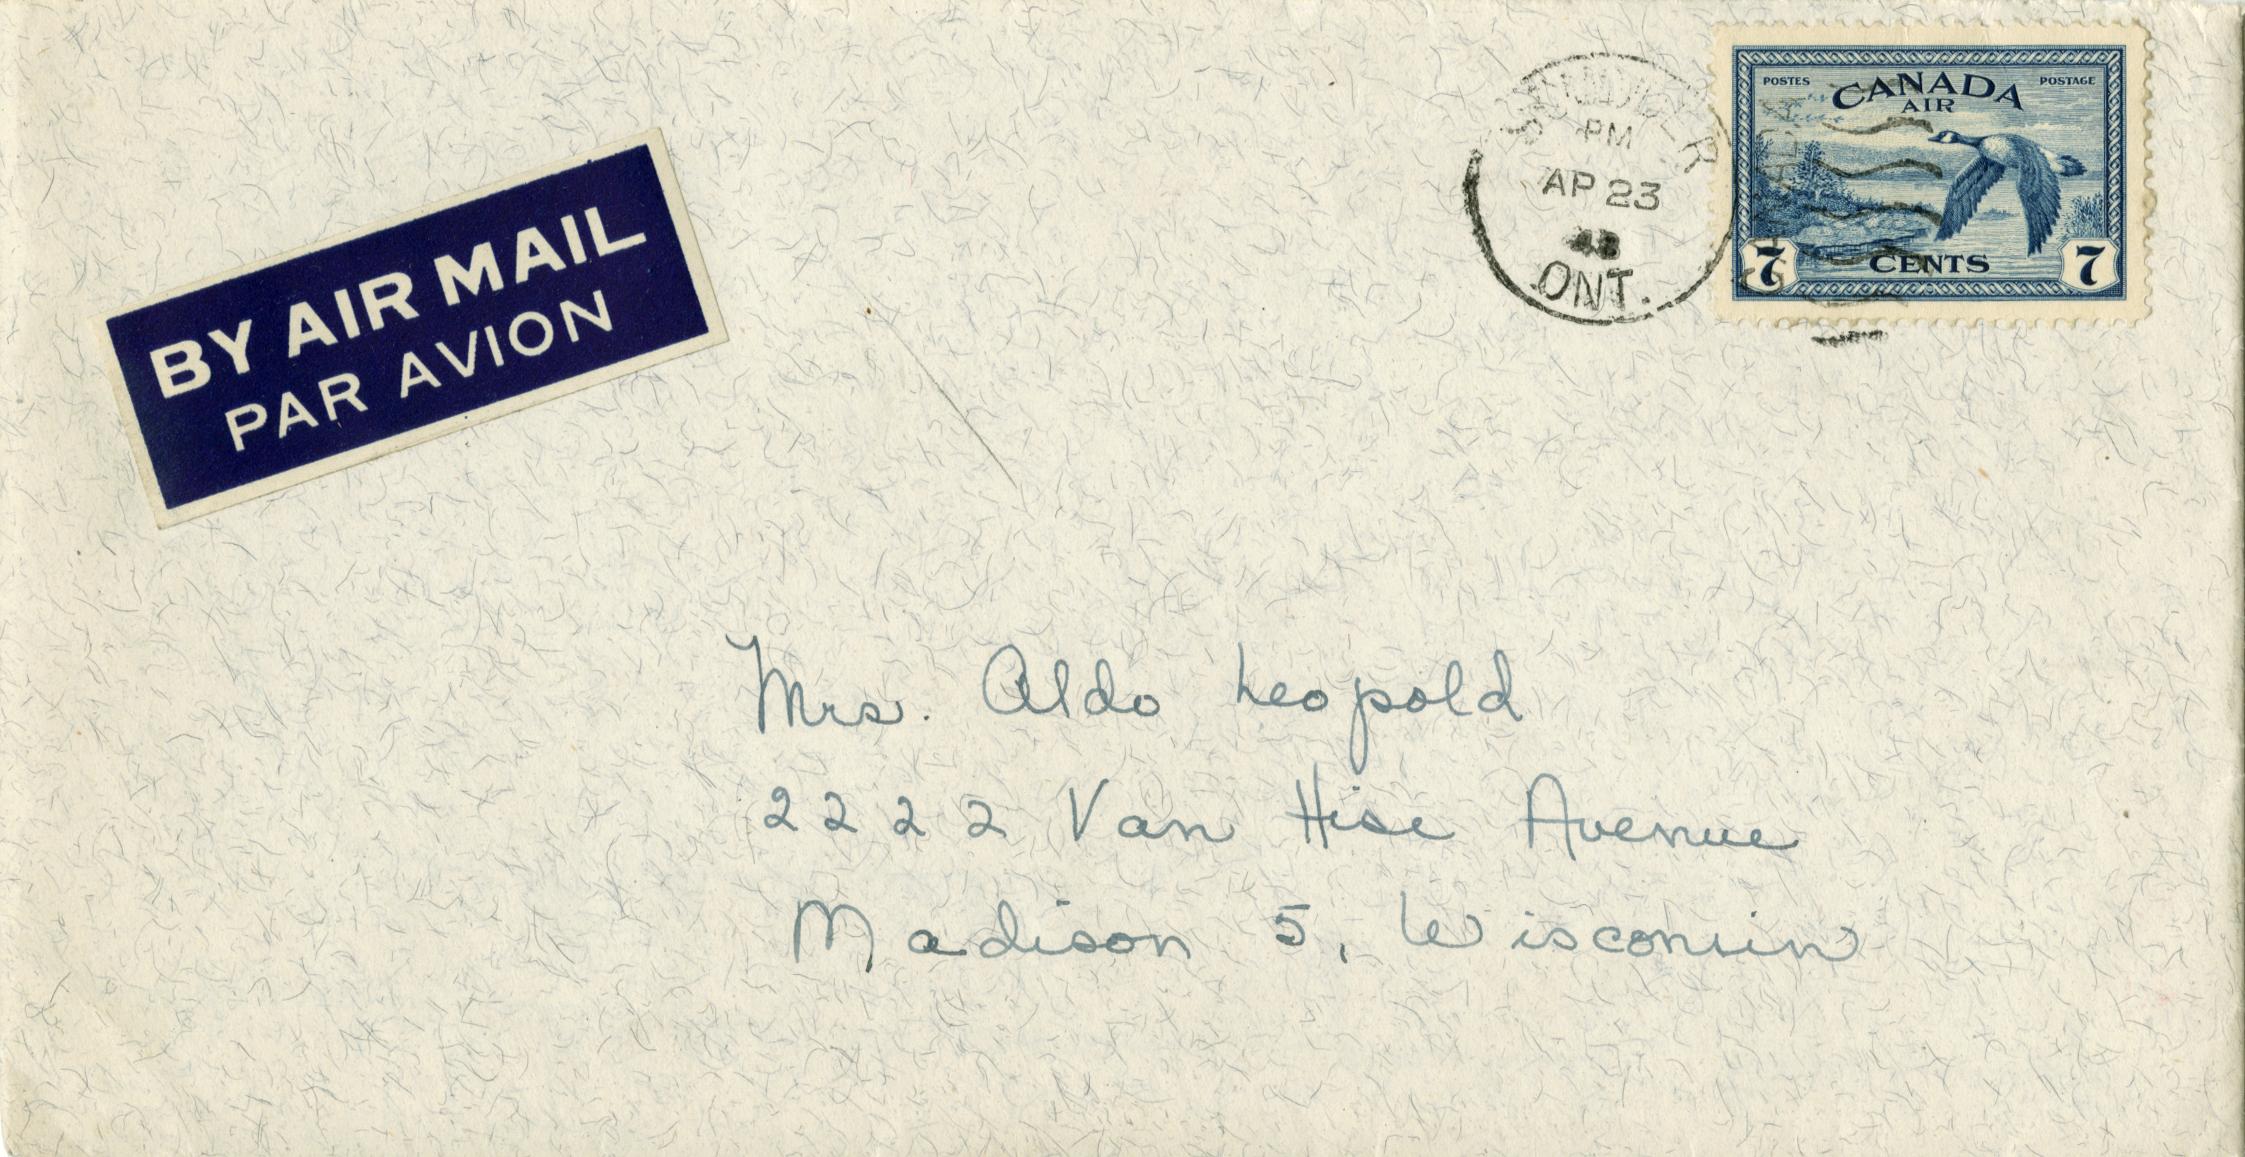 BY AIR MAIL
PAR AVION
PM
AP 23
48
ONT.
POSTES CANADA POSTAGE
AIR
7 CENTS 7
Mrs. Aldo Leopold
2222 Van Hise Avenue
Madison 5, Wisconsin